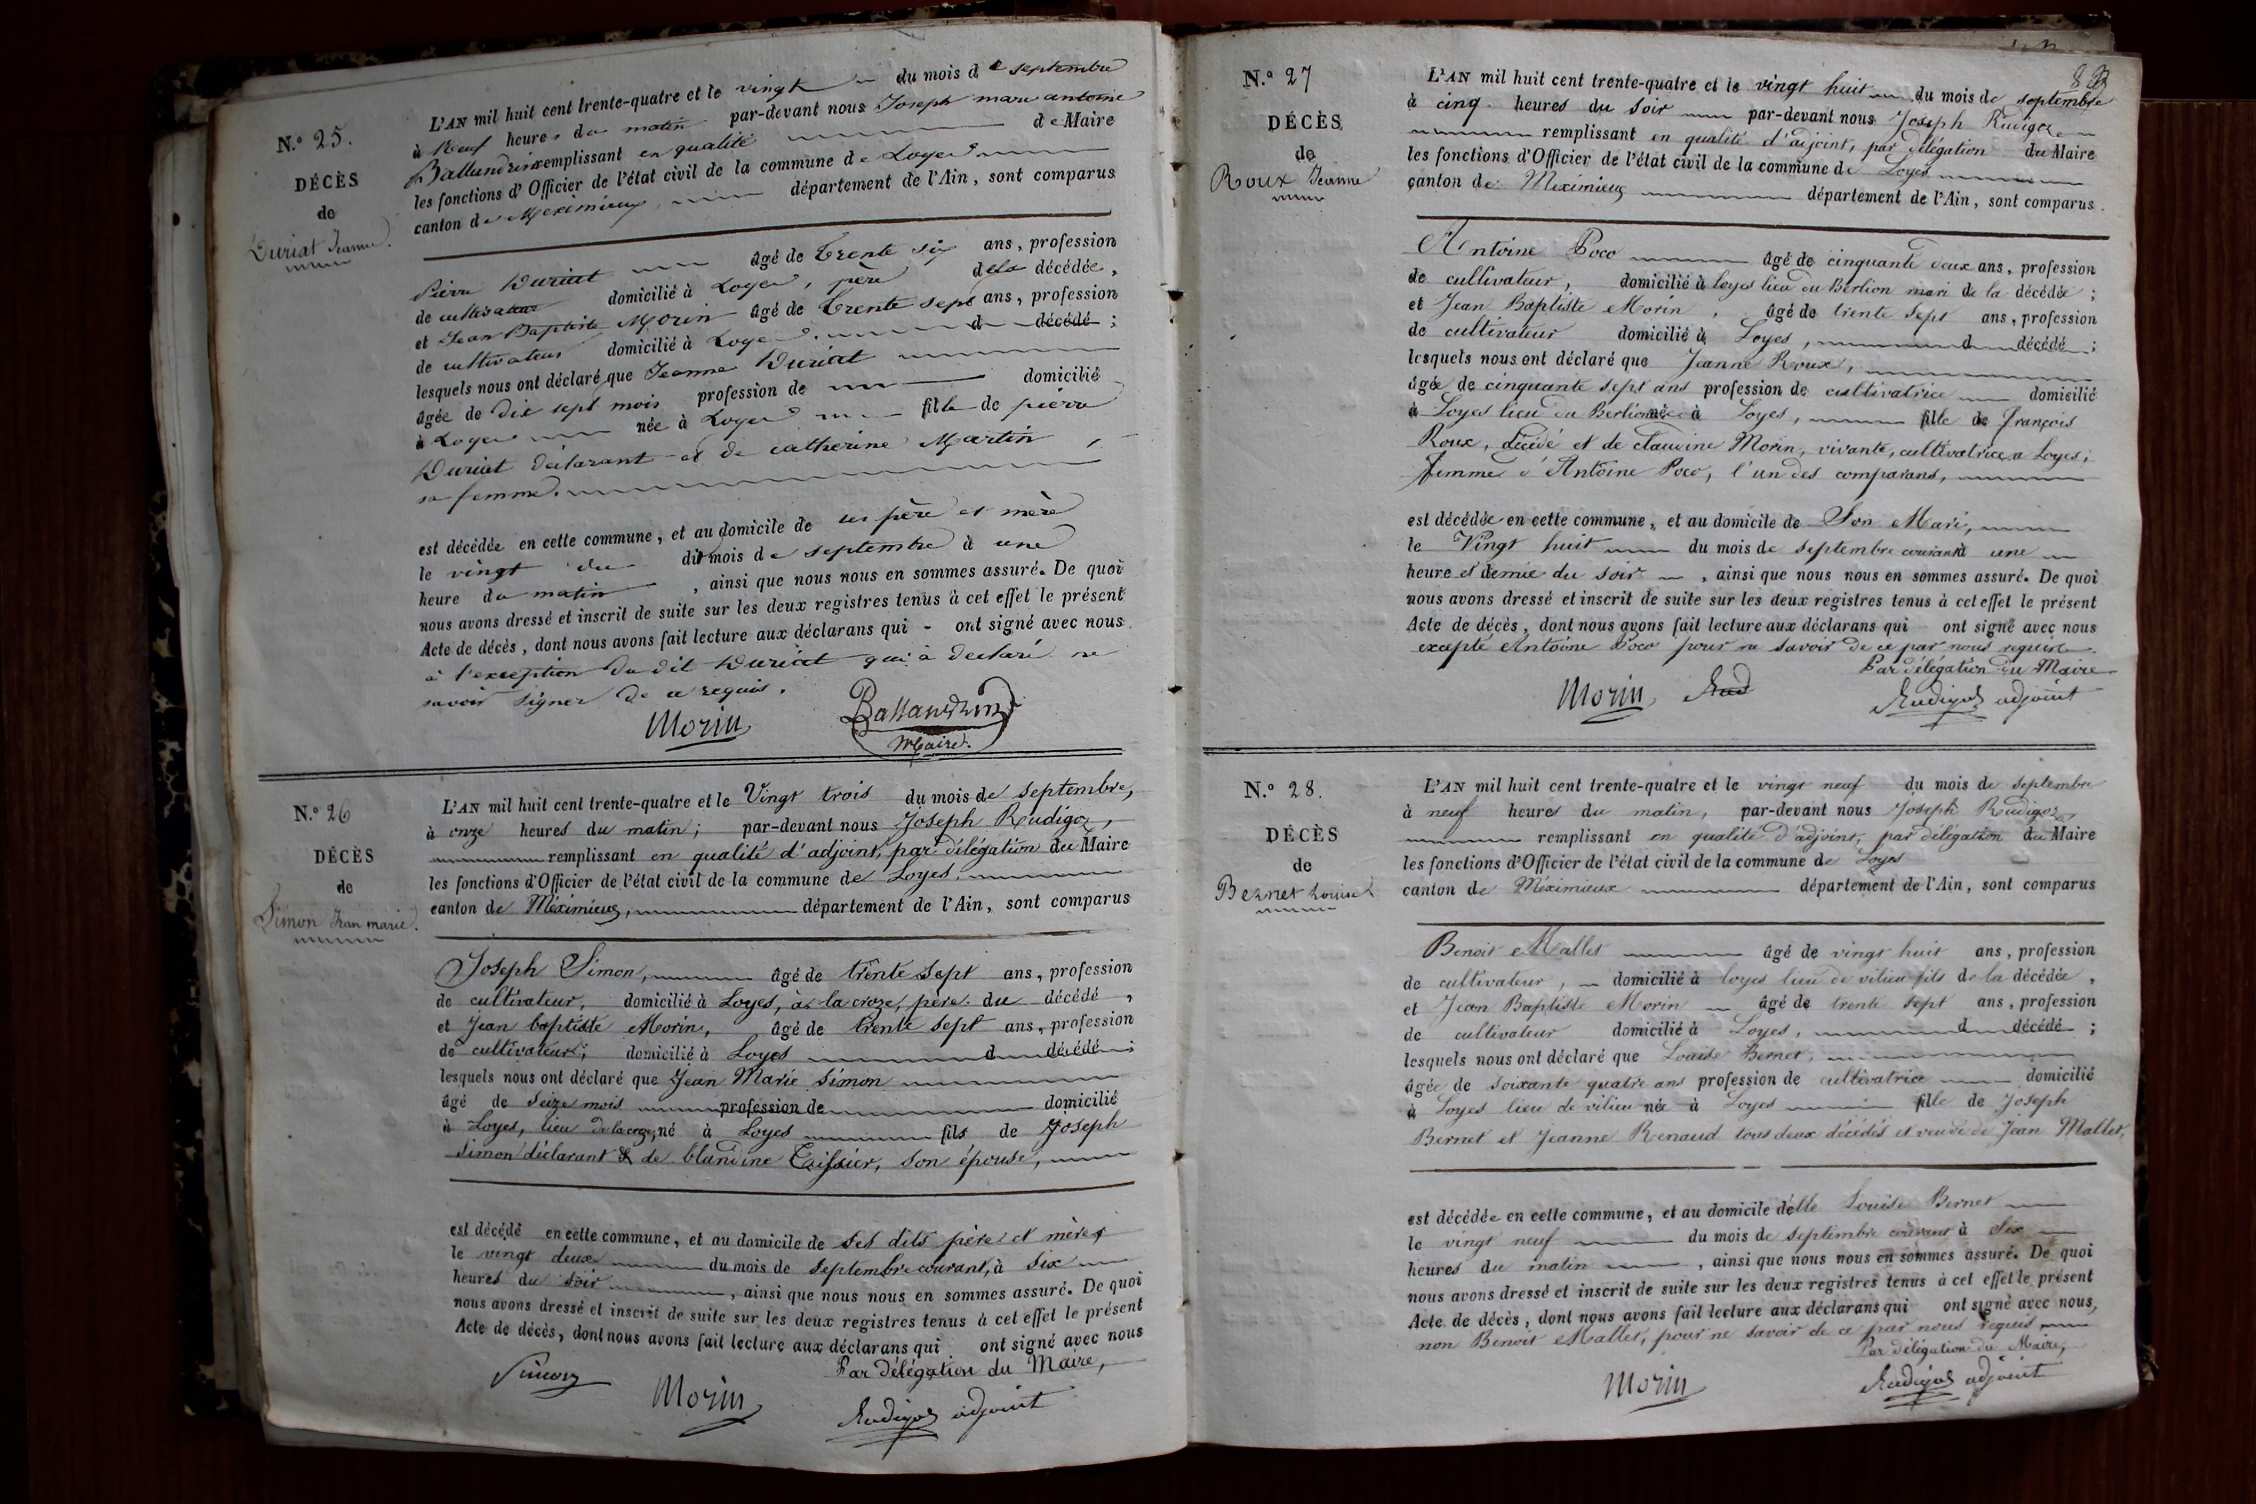 N.° 25.
DÉCÈS
de
Duriat Jeanne.
L'AN mil huit cent trente-quatre et le vingt du mois de septembre
à neuf heures du matin par-devant nous Joseph marc antoine
Ballandrin remplissant en qualité de Maire
les fonctions d'Officier de l'état civil de la commune de Loyes
canton de Meximieux, département de l'Ain, sont comparus
Pierre Duriat âgé de trente six ans, profession
de cultivateur domicilié à Loyes, père de la décédée,
et Jean Baptiste Morin âgé de trente sept ans, profession
de cultivateur domicilié à Loyes. d décédé ;
lesquels nous ont déclaré que Jeanne Duriat
âgée de dix sept mois profession de domicilié
à Loyes née à Loyes fille de pierre
Duriat déclarant et de catherine Martin,
sa femme.
est décédée en cette commune, et au domicile de ses père et mère
le vingt du dit mois de septembre à une
heure du matin, ainsi que nous nous en sommes assuré. De quoi
nous avons dressé et inscrit de suite sur les deux registres tenus à cet effet le présent
Acte de décès, dont nous avons fait lecture aux déclarans qui - ont signé avec nous
à l'exception du dit Duriat qui à declaré ne
savoir signer de ce requis.
Morin Ballandrin
Maire.
N.° 26
DÉCÈS
de
Simon Jean marie.
L'AN mil huit cent trente-quatre et le Vingt trois du mois de septembre,
à onze heures du matin; par-devant nous Joseph Rudigoz,
remplissant en qualité d'adjoint, par délégation du Maire
les fonctions d'Officier de l'état civil de la commune de Loyes.
canton de Méximieux, département de l'Ain, sont comparus
Joseph Simon, âgé de trente sept ans, profession
de cultivateur, domicilié à Loyes, à la croze, père du décédé,
et Jean baptiste Morin, âgé de trente sept ans, profession
de cultivateur; domicilié à Loyes d décédé ;
lesquels nous ont déclaré que Jean Marie Simon
âgé de seize mois profession de domicilié
à Loyes, lieu de la croze, né à Loyes fils de Joseph
Simon déclarant & de blandine Teissier, son épouse,
est décédé en cette commune, et au domicile de ses dits père et mère,
le vingt deux du mois de septembre courant, à six
heures du soir, ainsi que nous nous en sommes assuré. De quoi
nous avons dressé et inscrit de suite sur les deux registres tenus à cet effet le présent
Acte de décès, dont nous avons fait lecture aux déclarans qui ont signé avec nous
Par délégation du Maire,
Simon Morin Rudigoz adjoint
N.° 27
DÉCÈS
de
Roux Jeanne
L'AN mil huit cent trente-quatre et le vingt huit du mois de septembre
à cinq heures du soir par-devant nous Joseph Rudigoz
remplissant en qualité d'adjoint, par délégation du Maire
les fonctions d'Officier de l'état civil de la commune de Loyes
canton de Meximieux département de l'Ain, sont comparus
Antoine Poco âgé de cinquante deux ans, profession
de cultivateur, domicilié à loyes lieu du Berlion mari de la décédée ;
et Jean Baptiste Morin, âgé de trente sept ans, profession
de cultivateur domicilié à Loyes, d décédé ;
lesquels nous ont déclaré que Jeanne Roux,
âgée de cinquante sept ans profession de cultivatrice domicilié
à Loyes lieu du Berlion née à Loyes, fille de François
Roux, décédé et de Claudine Morin, vivante, cultivatrice a Loyes;
femme d'Antoine Poco, l'un des comparans,
est décédée en cette commune, et au domicile de Son Mari,
le Vingt huit du mois de septembre courant à une
heure et demie du soir, ainsi que nous nous en sommes assuré. De quoi
nous avons dressé et inscrit de suite sur les deux registres tenus à cet effet le présent
Acte de décès, dont nous avons fait lecture aux déclarans qui ont signé avec nous
excepté Antoine Poco pour ne savoir de ce par nous requis.
Par délégation du Maire
Morin Rudigoz adjoint
N.° 28.
DÉCÈS
de
Bernet Louise
L'AN mil huit cent trente-quatre et le vingt neuf du mois de septembre
à neuf heures du matin, par-devant nous Joseph Rudigoz
remplissant en qualité d'adjoint, par délégation du Maire
les fonctions d'Officier de l'état civil de la commune de Loyes
canton de Méximieux département de l'Ain, sont comparus
Benoit Mallet âgé de vingt huit ans, profession
de cultivateur, domicilié à loyes lieu de vilieu fils de la décédée,
et Jean Baptiste Morin âgé de trente sept ans, profession
de cultivateur domicilié à Loyes, d décédé ;
lesquels nous ont déclaré que Louise Bernet,
âgée de soixante quatre ans profession de cultivatrice domicilié
à Loyes lieu de vilieu née à Loyes fille de Joseph
Bernet et Jeanne Renaud tous deux décédés et veuve de Jean Mallet,
est décédée en cette commune, et au domicile d'elle Louise Bernet
le vingt neuf du mois de septembre courant à Six
heures du matin, ainsi que nous nous en sommes assuré. De quoi
nous avons dressé et inscrit de suite sur les deux registres tenus à cet effet le présent
Acte de décès, dont nous avons fait lecture aux déclarans qui ont signé avec nous,
non Benoit Mallet, pour ne savoir de ce par nous requis
Par délégation du Maire,
Morin Rudigoz adjoint